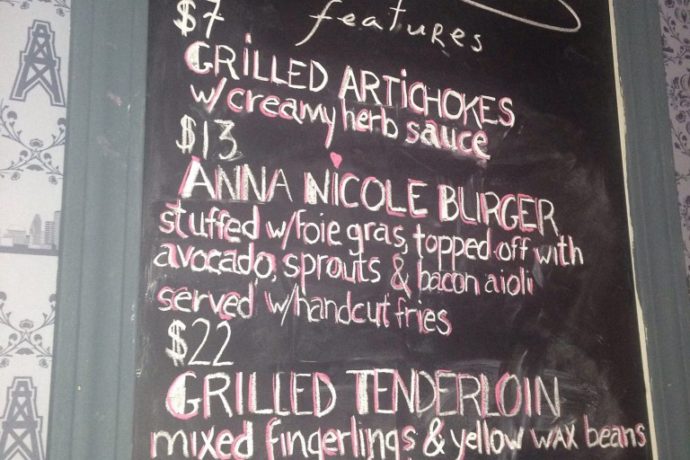 features
$7
GRILLED ARTICHOKES
w/creamy herb sauce
$13
ANNA NICOLE BURGER
stuffed w/foie gras, topped off with
avocado, sprouts & bacon aioli
served w/handcut fries
$22
GRILLED TENDERLOIN
mixed fingerlings & yellow wax beans